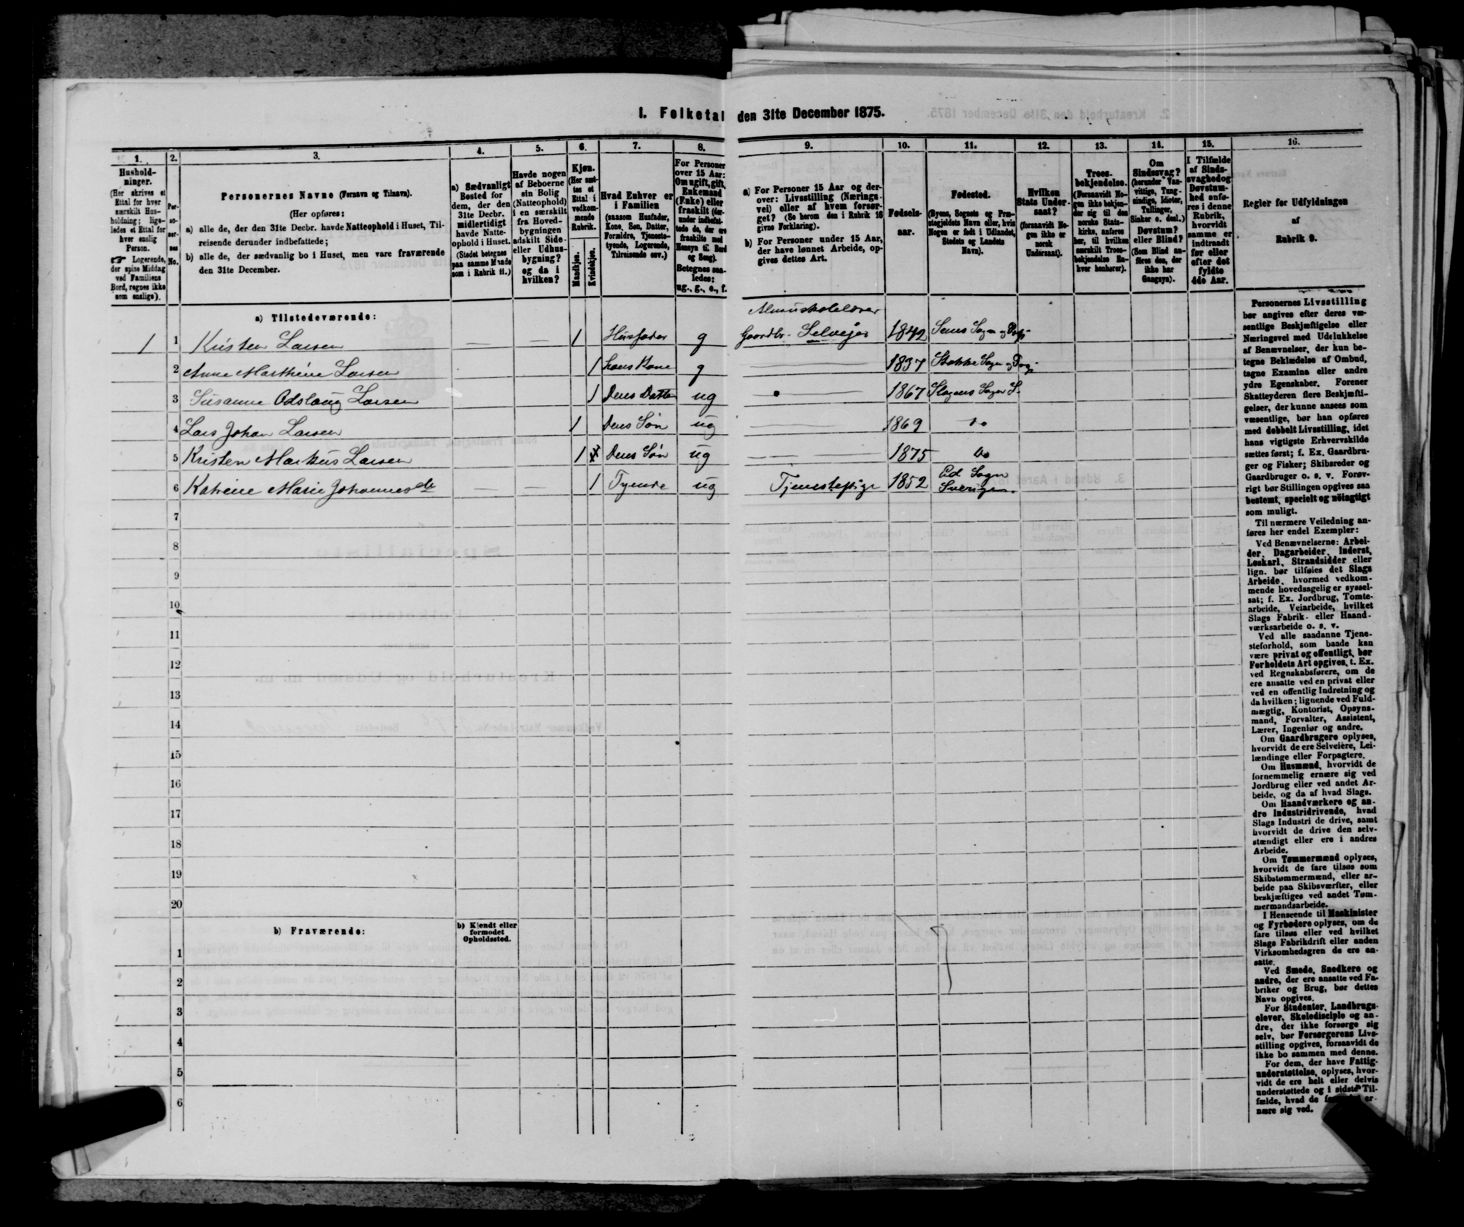 I. Folketal den 31te December 1875.
1. 2. 3. 4. 5. 6. 7. 8. 9. 10. 11. 12. 13. 14. 15. 16.
Husholdninger.
(Her skrives et Ettal for hver særskilt Husholdning; ligeledes et Ettal for hver enslig Person.
☞ Logerende, der spise Middag ved Familiens Bord, regnes ikke som enslige).
Personernes No.
Personernes Navne (Fornavn og Tilnavn).
(Her opføres:
a) alle de, der den 31te Decbr. havde Natteophold i Huset, Tilreisende derunder indbefattede;
b) alle de, der sædvanlig bo i Huset, men vare fraværende den 31te December.
a) Sædvanligt Bosted for dem, der den 31te Decbr. midlertidigt havde Natteophold i Huset.
(Stedet betegnes paa samme Maade som i Rubrik 11.)
Havde nogen af Beboerne sin Bolig (Natteophold) i en særskilt fra Hovedbygningen adskilt Side- eller Udhusbygning? og da i hvilken?
Kjøn.
(Her sættes et Ettal i vedkommende Rubrik.
Mandkjøn.
Kvindekjøn.
Hvad Enhver er i Familien
(saasom Husfader, Kone, Søn, Datter, Forældre, Tjenestetyende, Logerende, Tilreisende osv.)
For Personer over 15 Aar: Om ugift, gift, Enkemand (Enke) eller fraskilt
Betegnes saaledes: ug., g., e., f.
a) For Personer 15 Aar og derover: Livsstilling (Næringsvei) eller af hvem forsørget? (Se herom den i Rubrik 16 givne Forklaring).
b) For Personer under 15 Aar, der have lønnet Arbeide, opgives dettes Art.
Fødselsaar.
Fødested.
(Byens, Sognets og Præstegjeldets Navn eller, hvis Nogen er født i Udlandet, Stedets og Landets Navn).
Hvilken Stats Undersaat?
(forsaavidt Nogen ikke er norsk Undersaat).
Troesbekjendelse.
(Forsaavidt Nogen ikke bekjender sig til den norske Statskirke, anføres her, til hvilken Troesbekjendelse Enhver henhører).
Om Sindssvag?
Døvstum? eller Blind?
(Som Blind anføres den, der ikke har Gangsyn).
I Tilfælde af Sindssvaghed og Døvstumhed anføres i denne Rubrik, hvorvidt samme er indtraadt før eller efter det fyldte 4de Aar.
Regler for Udfyldningen af Rubrik 9.
a) Tilstedeværende:
Almuskolelærer
1 1 Kristen Larsen 1 Husfader g Gaardbr. Selveier 1842 Sems Sogn og Præg.
2 Anne Marthine Larsen 1 Hans Kone g 1837 Stokke Sogn og Præg.
3 Susanne Odslaug Larsen 1 Deres Datter ug 1867 Slagens Sogn S.
4 Lars Johan Larsen 1 Deres Søn ug 1869 do
5 Kristen Markus Larsen 1 Deres Søn ug 1875 do
6 Katrine Marie Johannesdtr 1 Tyende ug Tjenestepige 1852 Ed Sogn Sverige.
7
8
9
10
11
12
13
14
15
16
17
18
19
20
b) Fraværende:
b) Kjendt eller formodet Opholdssted.
1
2
3
4
5
6
Personernes Livsstilling
bør angives efter deres væ-
sentlige Beskjæftigelse eller
Næringsvei med Udelukkelse
af Benævnelser, der kun be-
tegne Beklædelse af Ombud,
tagne Examina eller andre
ydre Egenskaber. Forener
Skatteyderen flere Beskjæfti-
gelser, der kunne ansees som
væsentlige, bør han opføres
med dobbelt Livsstilling, idet
hans vigtigste Erhvervskilde
sættes først; f. Ex. Gaardbru-
ger og Fisker; Skibsreder og
Gaardbruger o. s. v. Forøv-
rigt bør Stillingen opgives saa
bestemt, specielt og nøiagtigt
som muligt.
Til nærmere Veiledning an-
føres her endel Exempler:
Ved Benævnelserne: Arbei-
der, Dagarbeider, Inderst,
Løskarl, Strandsidder eller
lign. bør tilføies det Slags
Arbeide, hvormed vedkom-
mende hovedsagelig er syssel-
sat; f. Ex. Jordbrug, Tomte-
arbeide, Veiarbeide, hvilket
Slags Fabrik- eller Haand-
værksarbeide o. s. v.
Ved alle saadanne Tjene-
steforhold, som baade kan
være privat og offentligt, bør
Forholdets Art opgives, t. Ex.
ved Regnskabsførere, om de
ere ansatte ved en privat eller
ved en offentlig Indretning og
da hvilken; lignende ved Fuld-
mægtig, Kontorist, Opsyns-
mand, Forvalter, Assistent,
Lærer, Ingeniør og andre.
Om Gaardbrugere oplyses,
hvorvidt de ere Selveiere, Lei-
lændinge eller Forpagtere.
Om Husmænd, hvorvidt de
fornemmelig ernære sig ved
Jordbrug eller ved andet Ar-
beide, og da af hvad Slags.
Om Haandværkere og an-
dre Industridrivende, hvad
Slags Industri de drive, samt
hvorvidt de drive den selv-
stændigt eller ere i andres
Arbeide.
Om Tømmermænd oplyses,
hvorvidt de fare tilsøs som
Skibstømmermænd, eller ar-
beide paa Skibsværfter, eller
beskjæftiges ved andet Tøm-
mermandsarbeide.
I Henseende til Maskinister
og Fyrbødere oplyses, om de
fare tilsøs eller ved hvilket
Slags Fabrikdrift eller anden
Virksomhedsgren de ere an-
satte.
Ved Smede, Snedkere og
andre, der ere ansatte ved Fa-
briker og Brug, bør dettes
Navn opgives.
For Studenter, Landbrugs-
elever, Skoledisciple og an-
dre, der ikke forsørge sig
selv, bør Forsørgerens Livs-
stilling opgives, forsaavidt de
ikke bo sammen med denne.
For dem, der have Fattig-
understøttelse, oplyses, hvor-
vidt de ere helt eller delvis
understøttede og i sidste Til-
fælde, hvad de forøvrigt er-
nære sig ved.